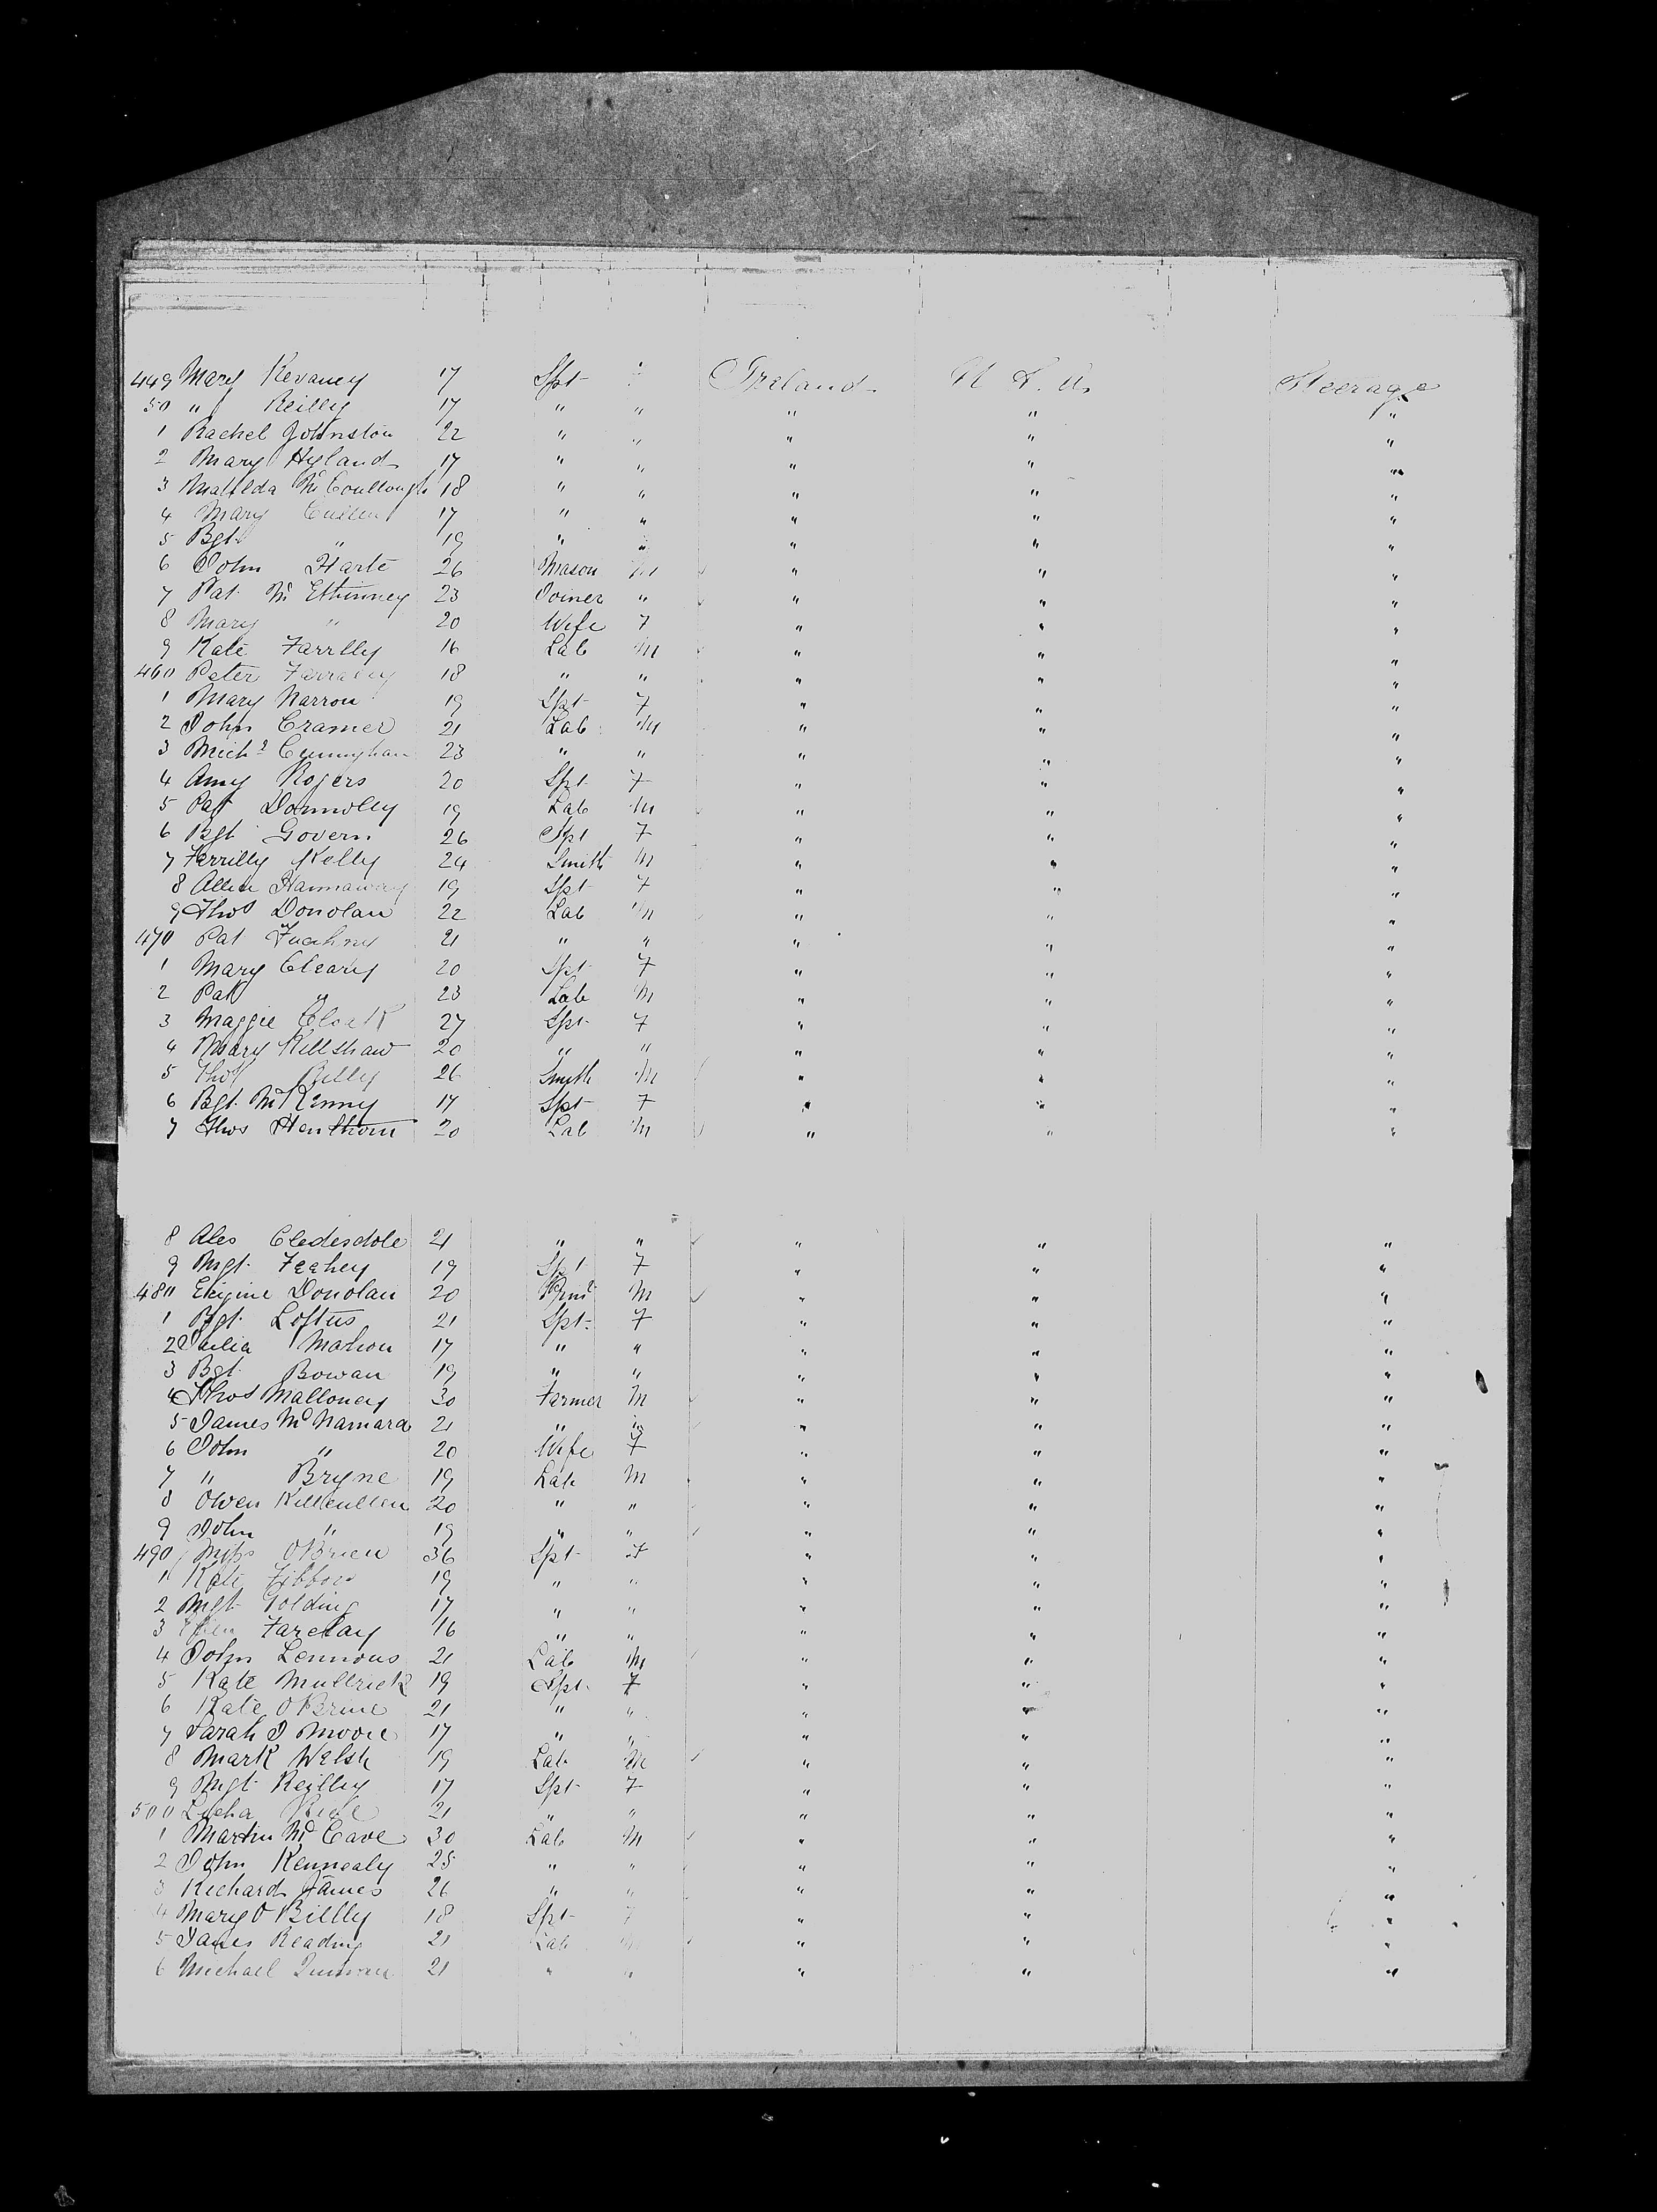 449 Mary Kevaney 17 Spt " Ireland U S. A. Steerage
50 " Reilly 17 " " " " "
1 Rachel Johnston 22 " " " " "
2 Mary Hyland 17 " " " " "
3 Matilda McCoullough 18 " " " " "
4 Mary Cullen 17 " " " " "
5 Bgt " 19 " " " " "
6 John Harte 26 Mason M " " "
7 Pat Mc 23 Joiner " " " "
8 Mary " 20 Wife F " " "
9 Kate Farrlly 16 Lab M " " "
460 Peter 18 " " " " "
1 Mary Narron 19 Spt F " " "
2 John Cramer 21 Lab M " " "
3 Michl Cunnyham 23 " " " " "
4 Amy Rogers 20 Spt F " " "
5 Pat Donnolly 19 Lab M " " "
6 Bgt Govern 26 Spt F " " "
7 Ferrilly Kelly 24 Smith M " " "
8 Hannaway 19 Spt F " " "
9 Thos Donolan 22 Lab M " " "
470 Pat 21 " " " " "
1 Mary Cleary 20 Spt F " " "
2 Pat " 23 Lab M " " "
3 Maggie Cloak 27 Spt F " " "
4 Mary Killshaw 20 " " " " "
5 Thos 26 Smith M " " "
6 Bgt McKinny 17 Spt F " " "
7 Thos Henthorn 20 Lab M " " "
8 Alex Cledesdole 21 " " " " "
9 Mgt Feahey 19 Spt F " " "
480 Donolan 20 M " " "
1 Bgt Loftus 21 Spt F " " "
2 Mahon 17 " " " " "
3 Bgt Bowan 19 " " " " "
4 Thos Malloney 30 Farmer M " " "
5 James McNamara 21 " " " " "
6 John " 20 Wife F " " "
7 " Bryne 19 Lab M " " "
8 Owen Killcullen 20 " " " " "
9 John " 19 " " " " "
490 Miss OBrien 36 Spt F " " "
1 Kate 19 " " " " "
2 Mgt Golding 17 " " " " "
3 Ellen Farelay 16 " " " " "
4 John Lennous 21 Lab M " " "
5 Kate Mullrick 19 Spt F " " "
6 Kate OBrine 21 " " " " "
7 Sarah J Moore 17 " " " " "
8 Mark Welsh 19 Lab M " " "
9 Mgt Reilly 17 Spt F " " "
500 21 " " " " "
1 Martin McCave 30 Lab M " " "
2 John Kennealy 25 " " " " "
3 Richard James 26 " " " " "
4 Mary O Billly 18 Spt F " " "
5 James Reading 21 Lab M " " "
6 Michael 21 " " " " "